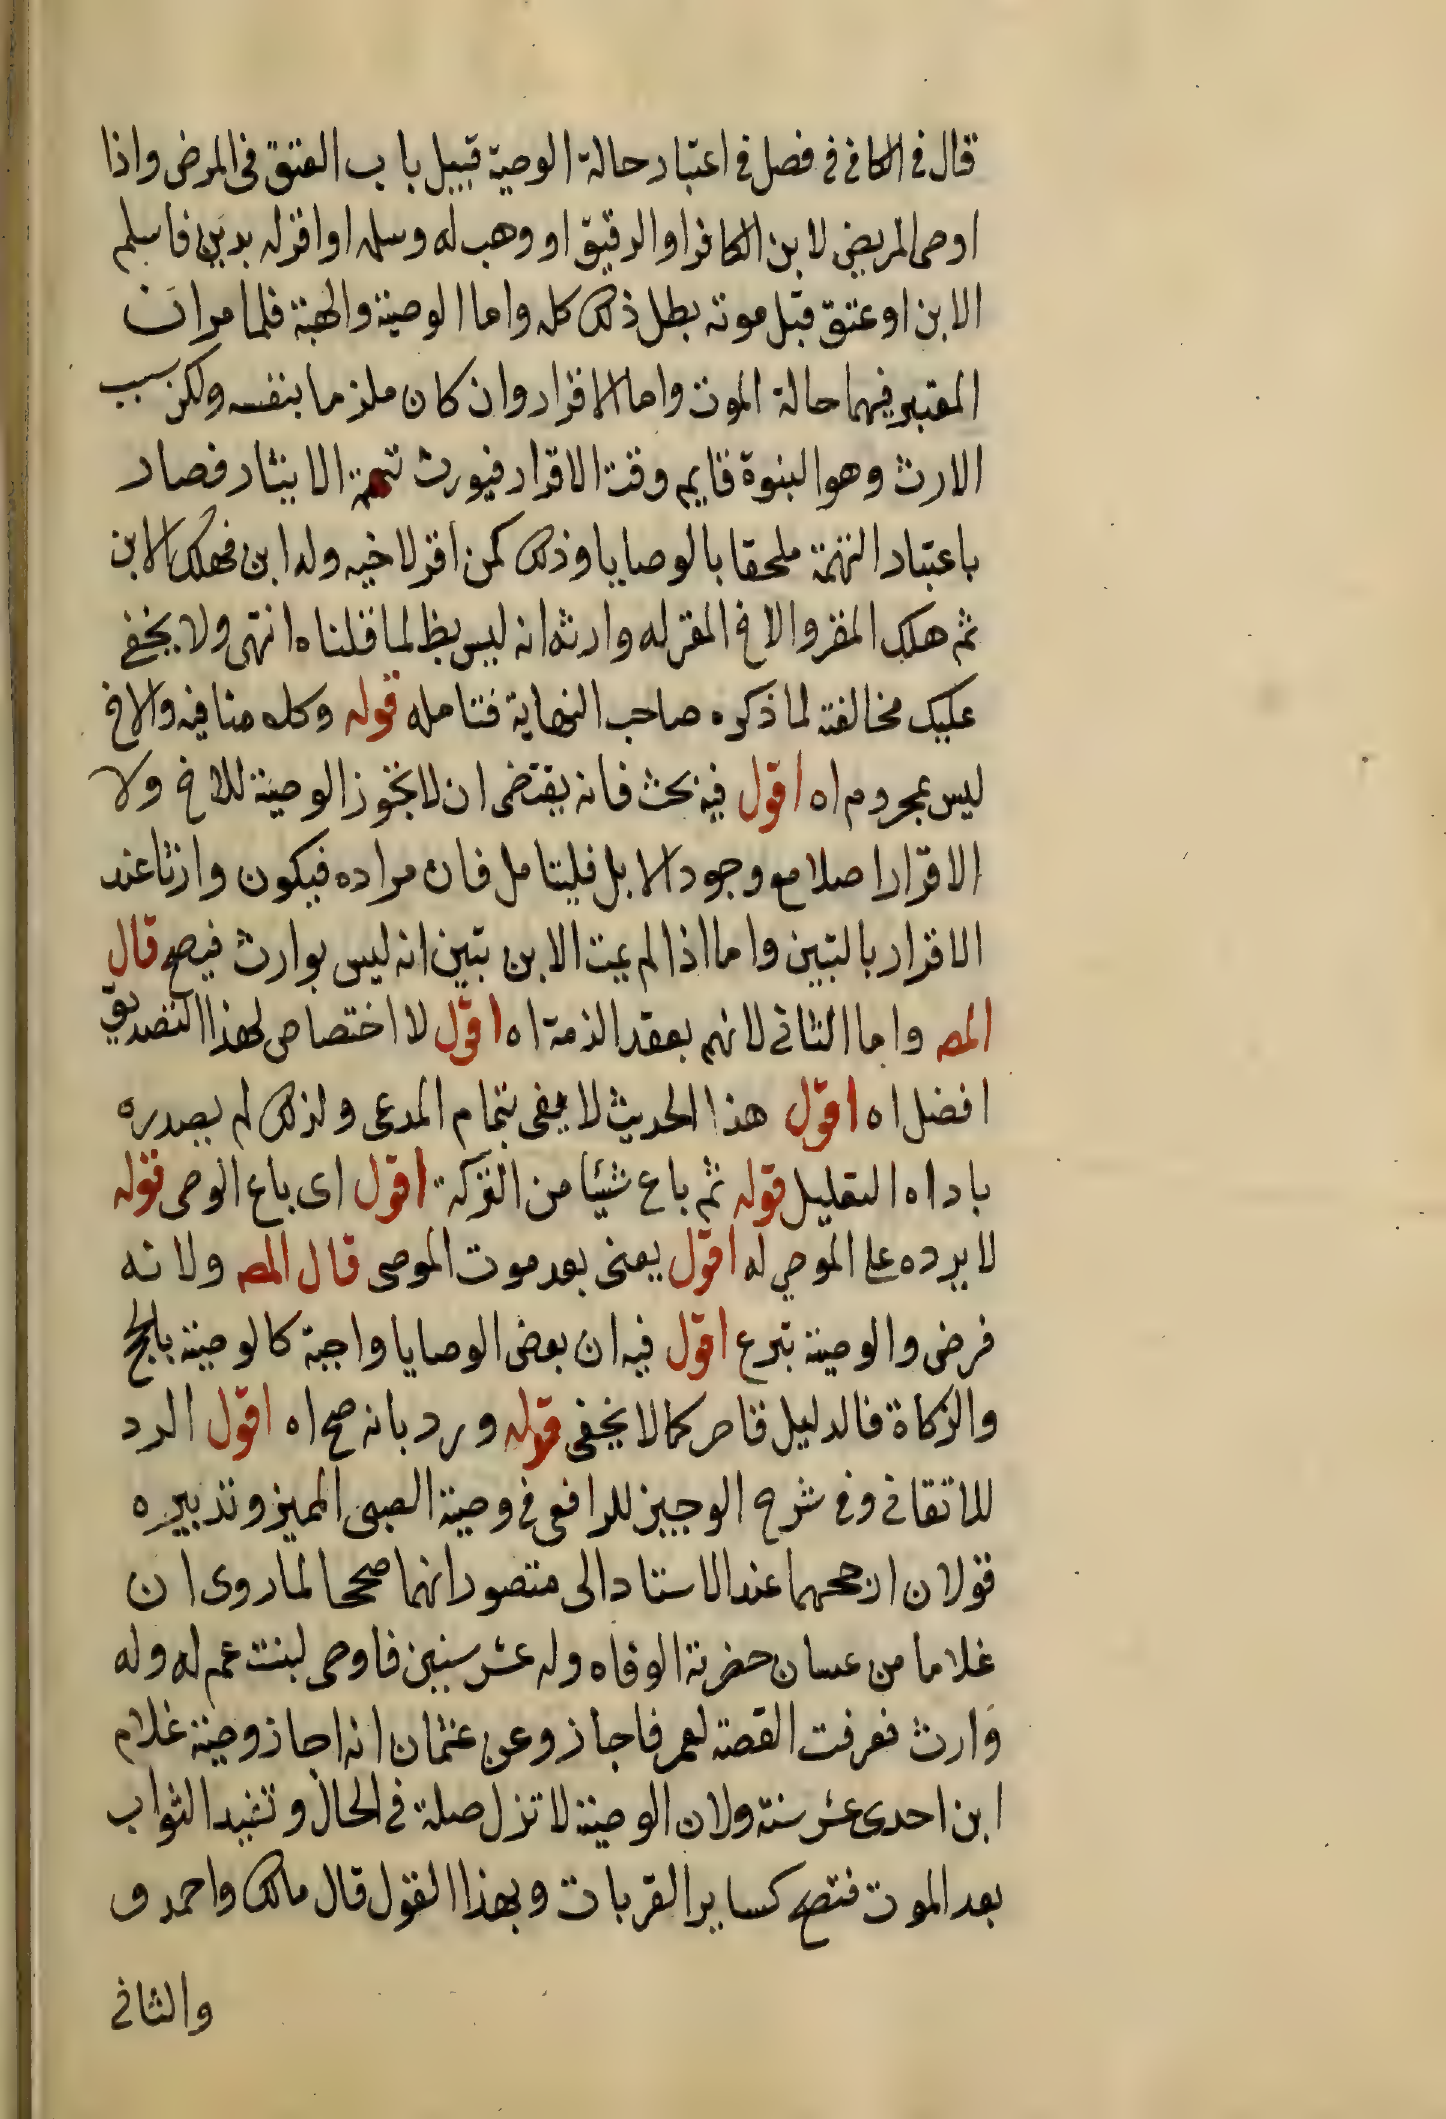 قال في الكافي في فصل في اعتبار حالة الوصية قبيل باب العتق في المرض واذا
اوصى المريض لابن الكافر او الرقيق او وهب له وسلمه او اقر له بدين فاسلم
الابن او عتق قبل موته بطل ذلك كله واما الوصية والهبة فلما مر ان
المعتبر فيهما حالة الموت واما الاقرار وان كان ملزما بنفسه ولكن سبب
الارث وهو البنوة قايم وقت الاقرار فيورث تهمة الايثار فصار
باعتبار التهمة ملحقا بالوصايا وذلك كمن اقر لاخيه وله ابن فهلك الابن
ثم هلك المقر والاخ المقر له وارثه انه ليس بظ لما قلناه انتهى ولا يخفى
عليك مخالفته لما ذكره صاحب النهاية فتامله قوله وكله منافيه والاخ
ليس بمحروم اه اقول فيه بحث فانه يقتضى ان لا تجوز الوصية للاخ ولا
الاقرار اصلا مع وجود الابل فليتامل فان مراده فيكون وارثا عند
الاقرار بالتبين واما اذا لم يمت الابن تبين انه ليس بوارث فيصح قال
المص واما الثانى لانهم بعقد الذمة اه اقول لا اختصاص لهذا التصديق
افضل اه اقول هذا الحديث لا يفى بتمام المدعى ولذلك لم يصدره
باداه التعليل قوله ثم باع شيئا من التركة اقول اى باع الوصى قوله
لا يرده على الموصى له اقول يعنى بعد موت الموصى قال المص ولانه
فرض والوصية تبرع اقول فيه ان بعض الوصايا واجبة كالوصية بالحج
والزكاة فالدليل قاصر كما لا يخفى قوله ورد بانه صح اه اقول الرد
للاتقانى وفى شرح الوجيز للرافعى فى وصية الصبى المميز وتدبيره
قولان ارجحهما عند الاستاد الى منصور انهما صححا لما روى ان
غلاما من غسان حضرته الوفاه وله عشر سنين فاوصى لبنت عم له وله
وارث فعرفت القصة لعمر فاجاز وعن عثمان انه اجاز وصية غلام
ابن احدى عشر سنة ولان الوصية لا تزل صلة في الحال وتفيد الثواب
بعد الموت فتصح كساير القربات وبهذا القول قال مالك واحمد و
والثانى